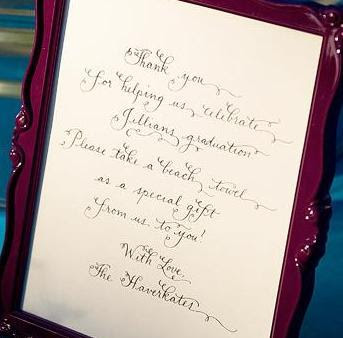 Thank you
for helping us celebrate
Jillians graduation
Please take a beach towel
as a special gift
from us to you!
With Love,
The Haverkates